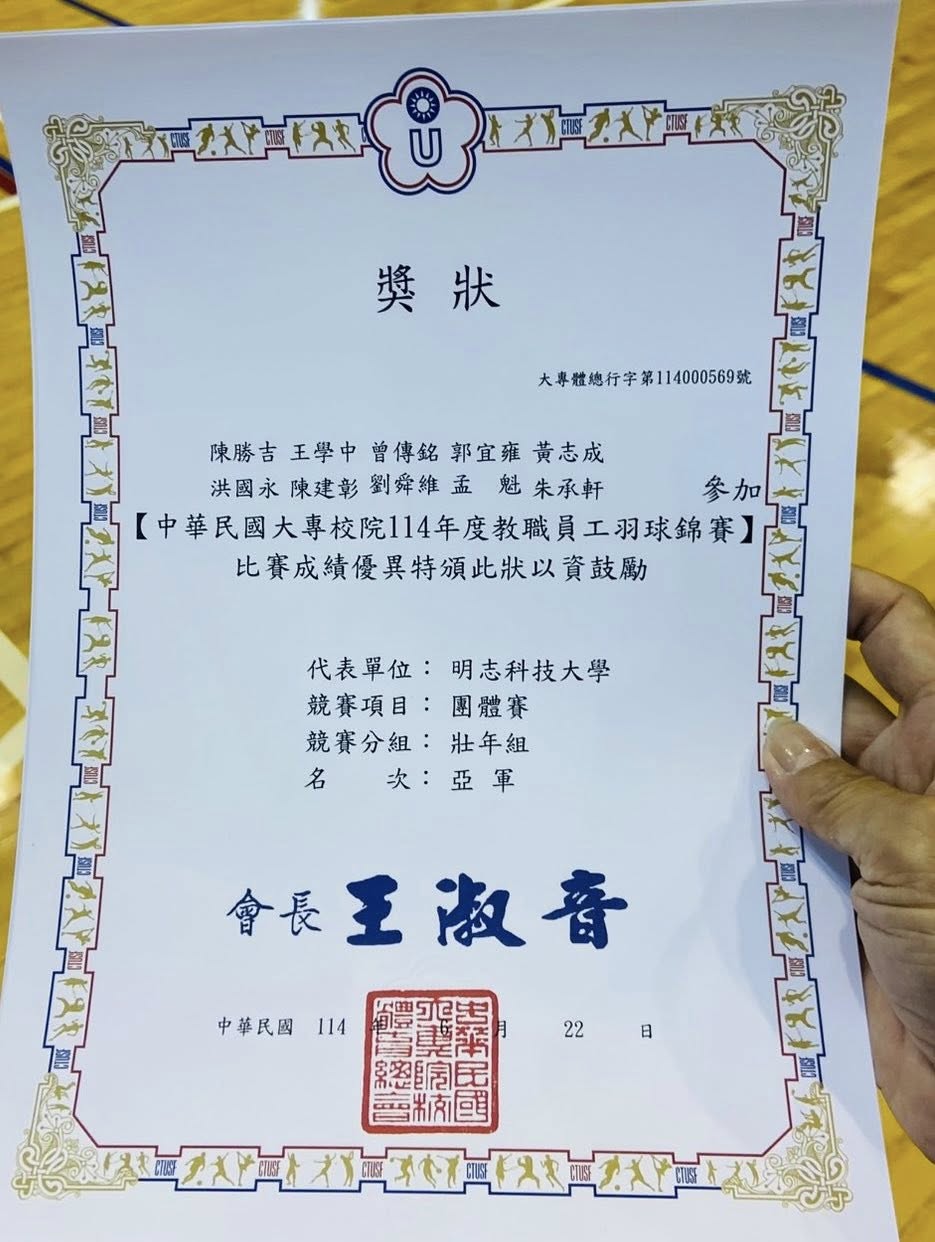 U
獎 狀
大專體總行字第114000569號
陳勝吉 王學中 曾傳銘 郭宜雍 黃志成
洪國永 陳建彰 劉舜維 孟 魁 朱承軒 參加
【中華民國大專校院114年度教職員工羽球錦賽】
比賽成績優異特頒此狀以資鼓勵
代表單位： 明志科技大學
競賽項目： 團體賽
競賽分組： 壯年組
名 次： 亞 軍
會長 王淑音
中華民國 114 年 6 月 22 日
中華民國大專院校體育總會
CTUSF